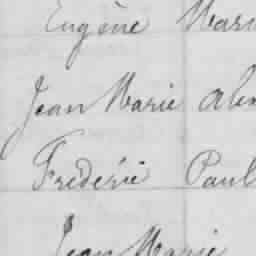 Eugène Marie
Jean Marie Alex
Frédéric Paul
Jean Marie